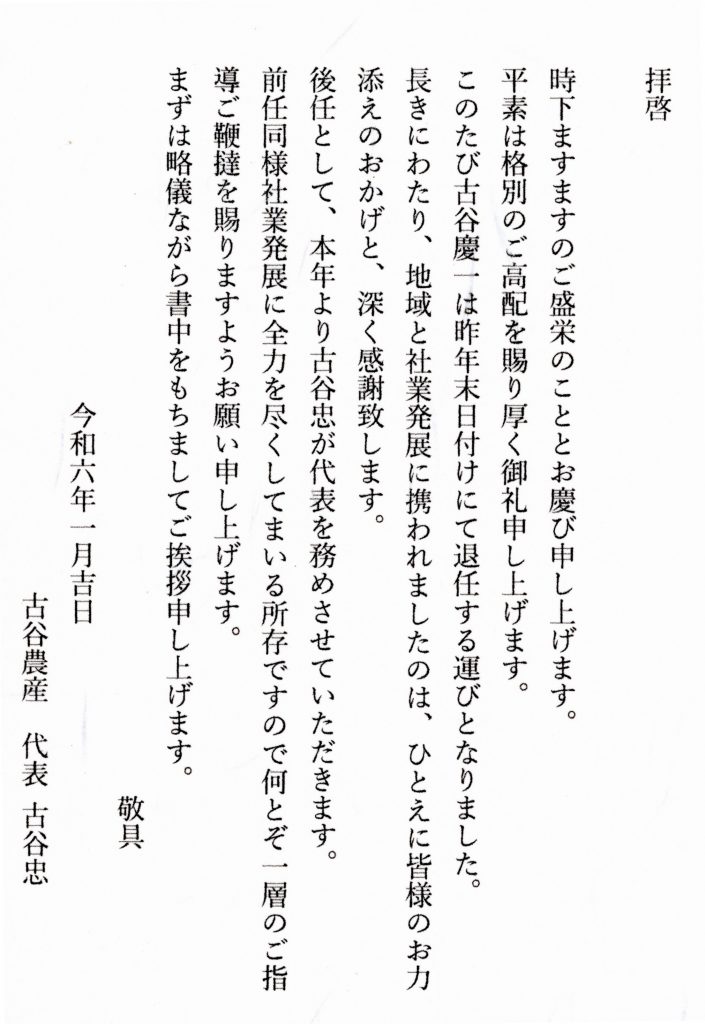 拝啓
時下ますますのご盛栄のこととお慶び申し上げます。
平素は格別のご高配を賜り厚く御礼申し上げます。
このたび古谷慶一は昨年末日付けにて退任する運びとなりました。
長きにわたり、地域と社業発展に携われましたのは、ひとえに皆様のお力
添えのおかげと、深く感謝致します。
後任として、本年より古谷忠が代表を務めさせていただきます。
前任同様社業発展に全力を尽くしてまいる所存ですので何とぞ一層のご指
導ご鞭撻を賜りますようお願い申し上げます。
まずは略儀ながら書中をもちましてご挨拶申し上げます。
敬具
令和六年一月吉日
古谷農産　代表 古谷忠